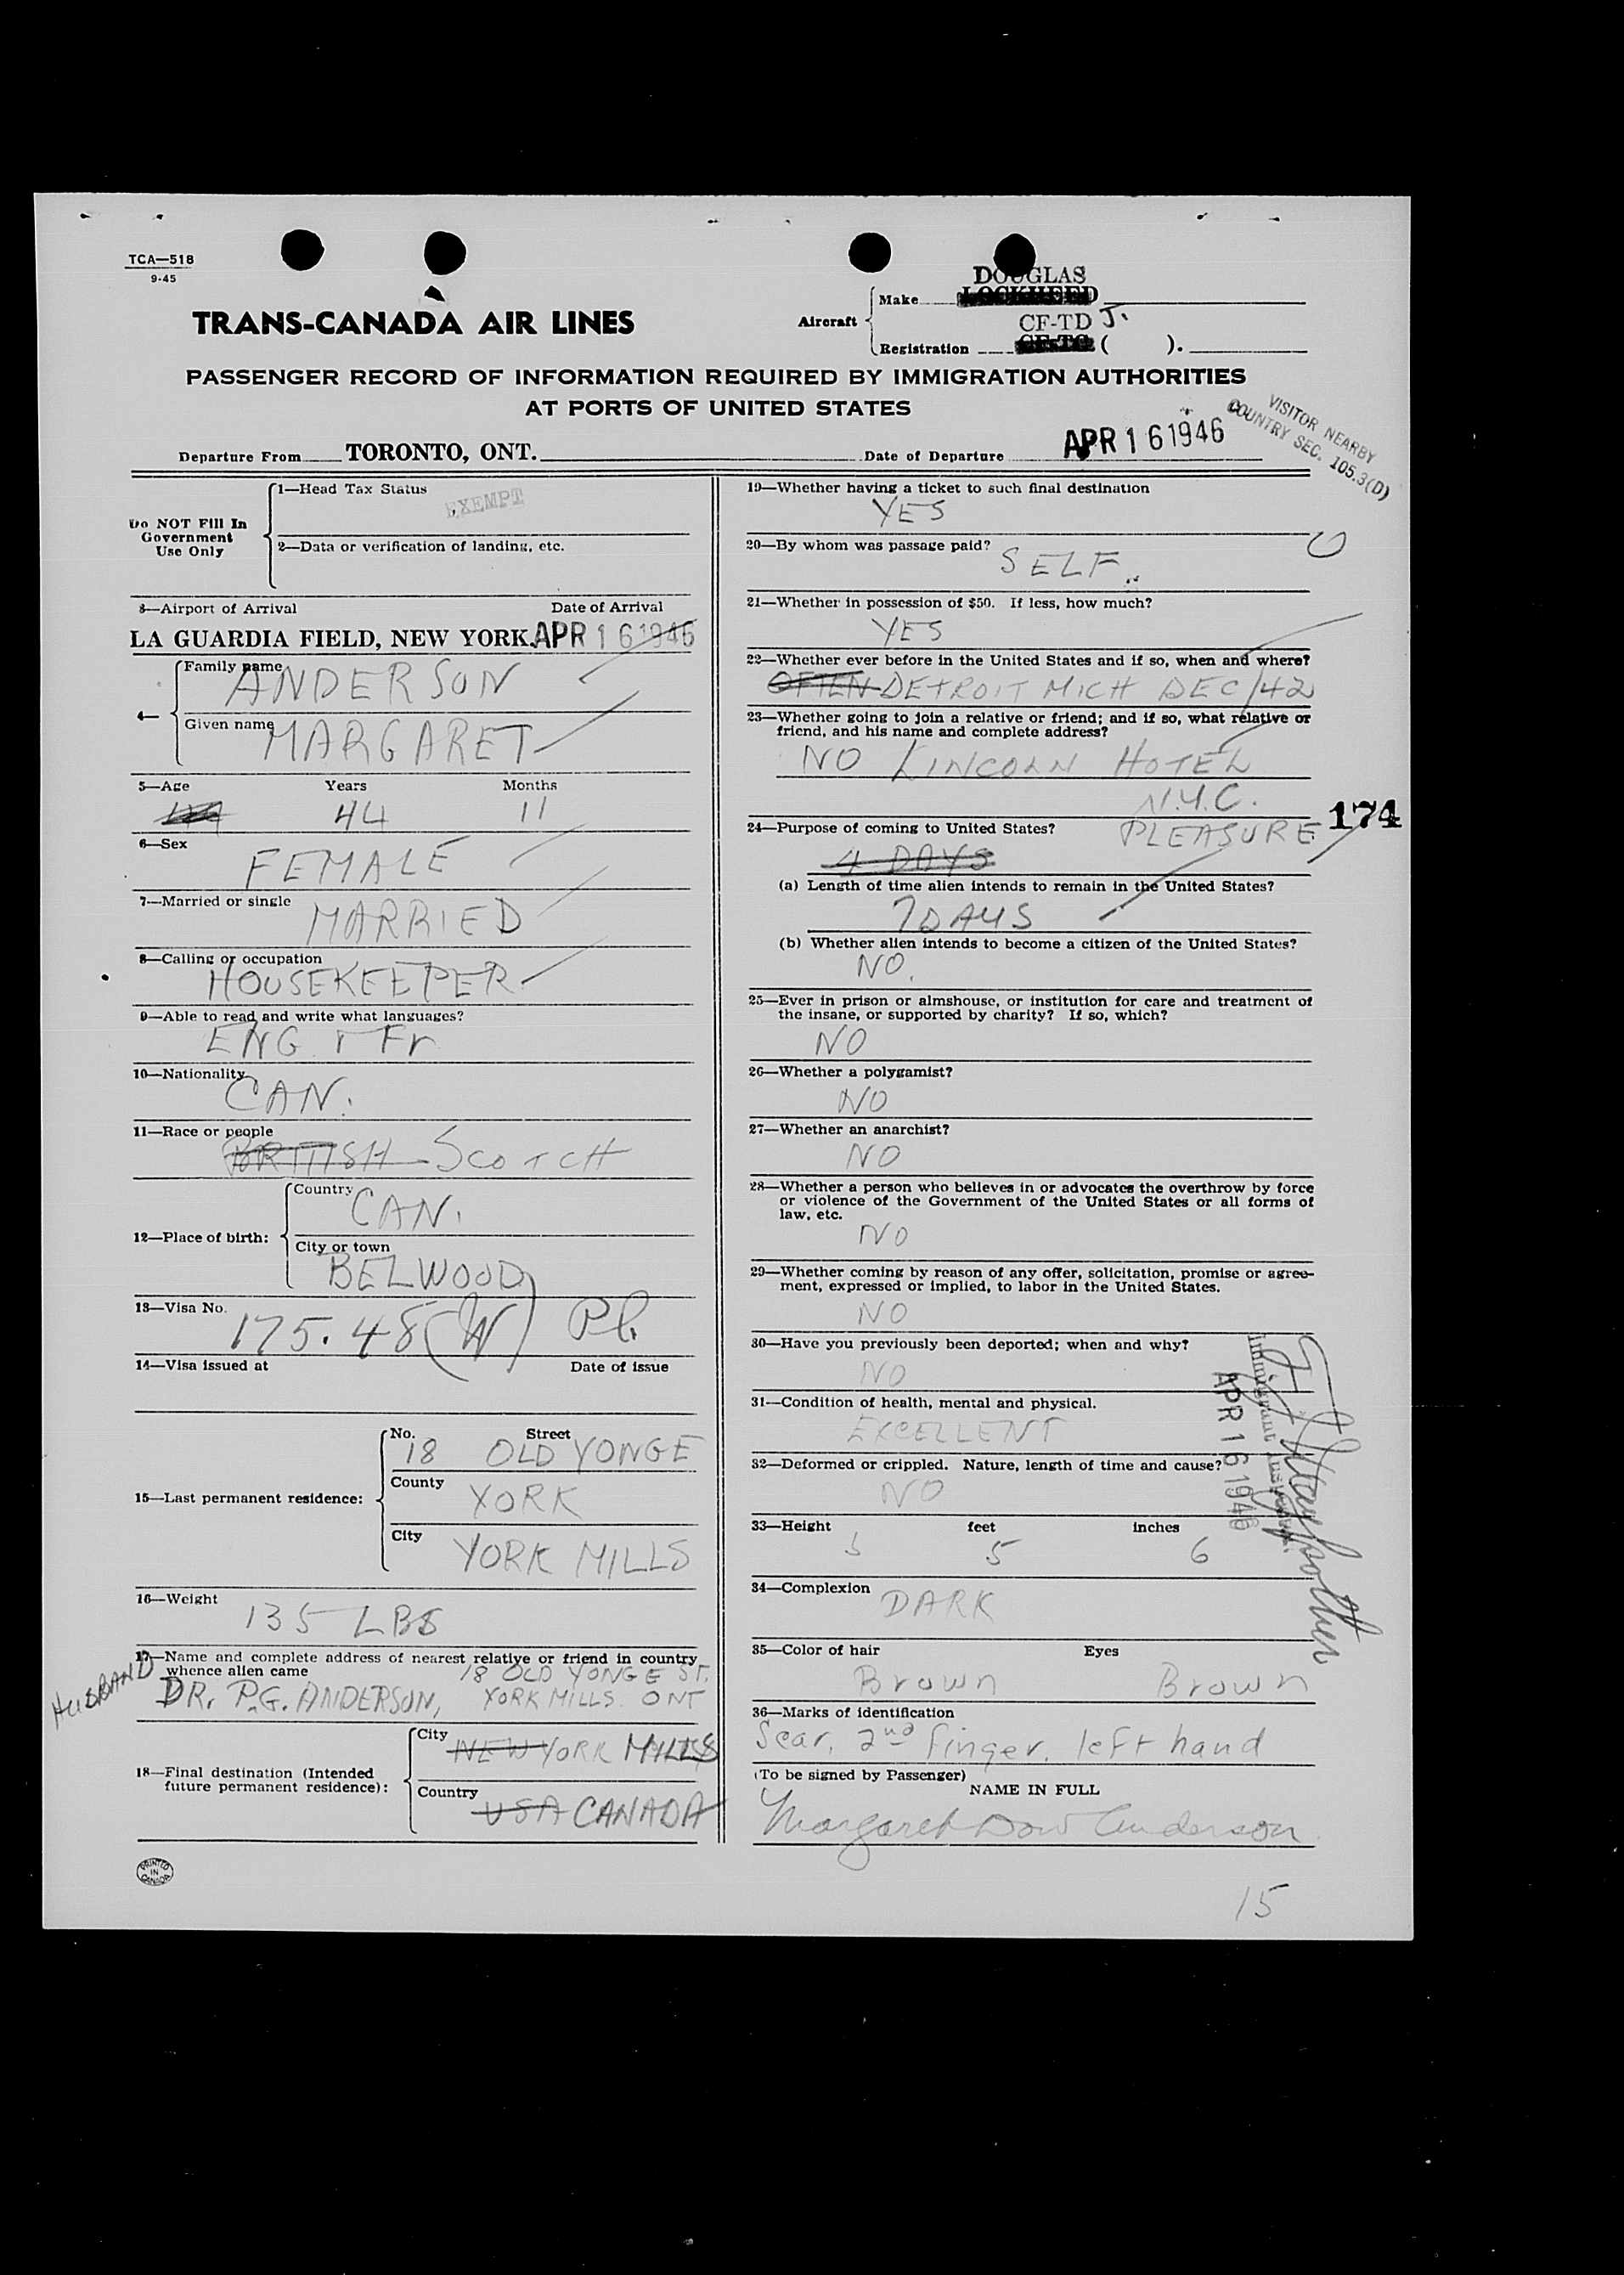 TCA—518
9-45
DOUGLAS
Make LOCKHEED
TRANS-CANADA AIR LINES
Aircraft
CF-TD J.
Registration CF-TC ( ).
PASSENGER RECORD OF INFORMATION REQUIRED BY IMMIGRATION AUTHORITIES
AT PORTS OF UNITED STATES
VISITOR NEARBY
COUNTRY SEC. 105.3(D)
Departure From TORONTO, ONT. Date of Departure APR 16 1946
Do NOT Fill In
Government
Use Only
1—Head Tax Status
EXEMPT
2—Data or verification of landing, etc.
3—Airport of Arrival Date of Arrival
LA GUARDIA FIELD, NEW YORK. APR 16 1946
4—
Family name ANDERSON
Given name MARGARET
5—Age Years Months
44 11
6—Sex
FEMALE
7—Married or single
MARRIED
8—Calling or occupation
HOUSEKEEPER
9—Able to read and write what languages?
ENG + Fr
10—Nationality
CAN.
11—Race or people
BRITISH SCOTCH
12—Place of birth:
Country
CAN.
City or town
BELWOOD
13—Visa No.
175.48 (W) Pl.
14—Visa issued at Date of issue
15—Last permanent residence:
No. Street
18 OLD YONGE
County
YORK
City
YORK MILLS
16—Weight
135 LBS
17—Name and complete address of nearest relative or friend in country
whence alien came 18 OLD YONGE ST.
HUSBAND DR. P.G. ANDERSON, YORK MILLS. ONT
18—Final destination (Intended
future permanent residence):
City
NEW YORK MILLS
Country
USA CANADA
PRINTED
IN
CANADA
19—Whether having a ticket to such final destination
YES
20—By whom was passage paid?
SELF
21—Whether in possession of $50. If less, how much?
YES
22—Whether ever before in the United States and if so, when and where?
OFTEN DETROIT MICH DEC/42
23—Whether going to join a relative or friend; and if so, what relative or
friend, and his name and complete address?
NO LINCOLN HOTEL
N.Y.C.
174
24—Purpose of coming to United States? PLEASURE
4 DAYS
(a) Length of time alien intends to remain in the United States?
7 DAYS
(b) Whether alien intends to become a citizen of the United States?
NO.
25—Ever in prison or almshouse, or institution for care and treatment of
the insane, or supported by charity? If so, which?
NO
26—Whether a polygamist?
NO
27—Whether an anarchist?
NO
28—Whether a person who believes in or advocates the overthrow by force
or violence of the Government of the United States or all forms of
law, etc.
NO
29—Whether coming by reason of any offer, solicitation, promise or agree-
ment, expressed or implied, to labor in the United States.
NO
30—Have you previously been deported; when and why?
NO
31—Condition of health, mental and physical.
EXCELLENT
32—Deformed or crippled. Nature, length of time and cause?
NO
APR 16 1946
Immigrant Inspector
33—Height feet inches
5 5 6
34—Complexion
DARK
35—Color of hair Eyes
Brown Brown
36—Marks of identification
Scar, 2nd finger, left hand
(To be signed by Passenger)
NAME IN FULL
Margaret Dow Anderson
15